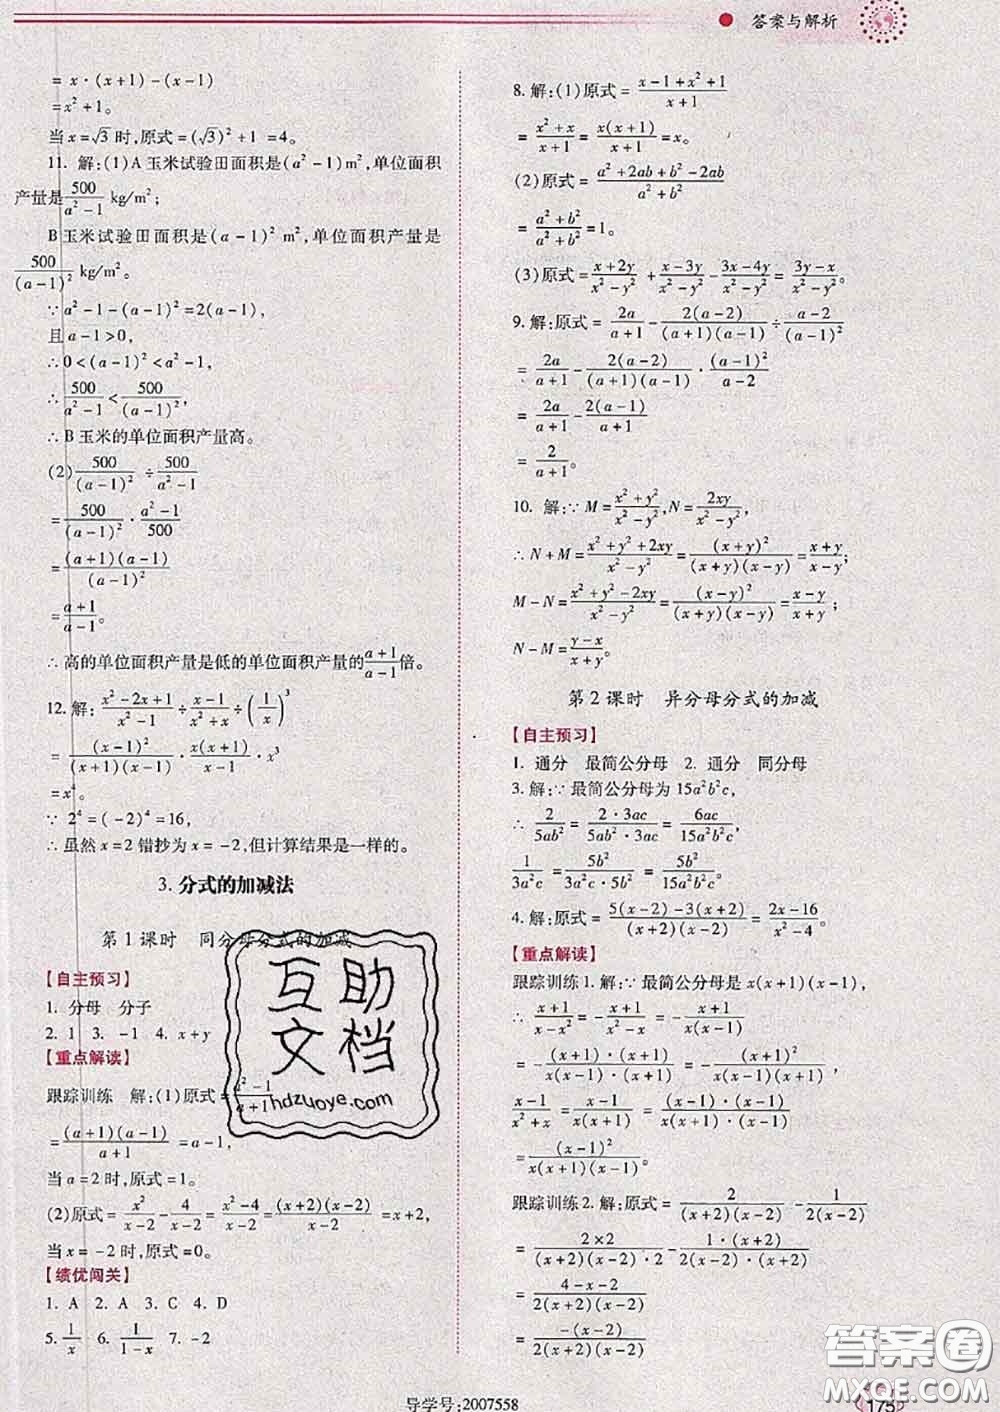 答案与解析
= x·(x+1)-(x-1)
=x²+1。
当x=√3时,原式=(√3)²+1=4。
11. 解:(1)A玉米试验田面积是(a²-1)m²,单位面积
产量是500/(a²-1) kg/m²;
B玉米试验田面积是(a-1)² m²,单位面积产量是
500/(a-1)² kg/m²。
∵a²-1-(a-1)²=2(a-1),
且a-1>0,
∴0<(a-1)²<a²-1,
∴500/(a²-1)<500/(a-1)²,
∴B玉米的单位面积产量高。
(2)500/(a-1)² ÷ 500/(a²-1)
=500/(a-1)²·(a²-1)/500
=(a+1)(a-1)/(a-1)²
=(a+1)/(a-1)。
∴高的单位面积产量是低的单位面积产量的(a+1)/(a-1)倍。
12. 解:(x²-2x+1)/(x²-1)÷(x-1)/(x²+x)÷(1/x)³
=(x-1)²/((x+1)(x-1))·x(x+1)/(x-1)·x³
=x⁴。
∵2⁴=(-2)⁴=16,
∴虽然x=2错抄为x=-2,但计算结果是一样的。
3. 分式的加减法
第1课时 同分母分式的加减
【自主预习】
1. 分母 分子
2. 1 3. -1 4. x+y
【重点解读】
跟踪训练 解:(1)原式=(a²-1)/(a+1)
=(a+1)(a-1)/(a+1)=a-1,
当a=2时,原式=1。
(2)原式=x²/(x-2)-4/(x-2)=(x²-4)/(x-2)=(x+2)(x-2)/(x-2)=x+2,
当x=-2时,原式=0。
【绩优闯关】
1. A 2. A 3. C 4. D
5. 1/x 6. 1/(1-x) 7. -2
8. 解:(1)原式=(x-1+x²+1)/(x+1)
=(x²+x)/(x+1)=x(x+1)/(x+1)=x。
(2)原式=(a²+2ab+b²-2ab)/(a²+b²)
=(a²+b²)/(a²+b²)=1。
(3)原式=(x+2y)/(x²-y²)+(x-3y)/(x²-y²)-(3x-4y)/(x²-y²)=(3y-x)/(x²-y²)。
9. 解:原式=2a/(a+1)-2(a-2)/((a+1)(a-1))÷(a-2)/(a-1)²
=2a/(a+1)-2(a-2)/((a+1)(a-1))·(a-1)²/(a-2)
=2a/(a+1)-2(a-1)/(a+1)
=2/(a+1)。
10. 解:∵M=(x²+y²)/(x²-y²),N=2xy/(x²-y²),
∴N+M=(x²+y²+2xy)/(x²-y²)=(x+y)²/((x+y)(x-y))=(x+y)/(x-y);
M-N=(x²+y²-2xy)/(x²-y²)=(x-y)²/((x+y)(x-y))=(x-y)/(x+y);
N-M=(y-x)/(x+y)。
第2课时 异分母分式的加减
【自主预习】
1. 通分 最简公分母 2. 通分 同分母
3. 解:∵最简公分母为15a²b²c,
∴2/(5ab²)=2·3ac/(5ab²·3ac)=6ac/(15a²b²c),
1/(3a²c)=5b²/(3a²c·5b²)=5b²/(15a²b²c)。
4. 解:原式=(5(x-2)-3(x+2))/((x+2)(x-2))=(2x-16)/(x²-4)。
【重点解读】
跟踪训练1. 解:∵最简公分母是x(x+1)(x-1),
∴(x+1)/(x-x²)=-(x+1)/(x²-x)=-(x+1)/(x(x-1))
=-(x+1)·(x+1)/(x(x-1)·(x+1))=-(x+1)²/(x(x+1)(x-1)),
(x-1)/(x²+x)=(x-1)/(x(x+1))=(x-1)·(x-1)/(x(x+1)·(x-1))
=(x-1)²/(x(x+1)(x-1))。
跟踪训练2. 解:原式=2/((x+2)(x-2))-1/(2(x-2))
=2×2/((x+2)(x-2)·2)-1·(x+2)/(2(x-2)(x+2))
=(4-x-2)/(2(x+2)(x-2))
=-(x-2)/(2(x+2)(x-2))
导学号:2007558
175
互助
文档
hdzuoye.com
答案圈
MXQE.COM